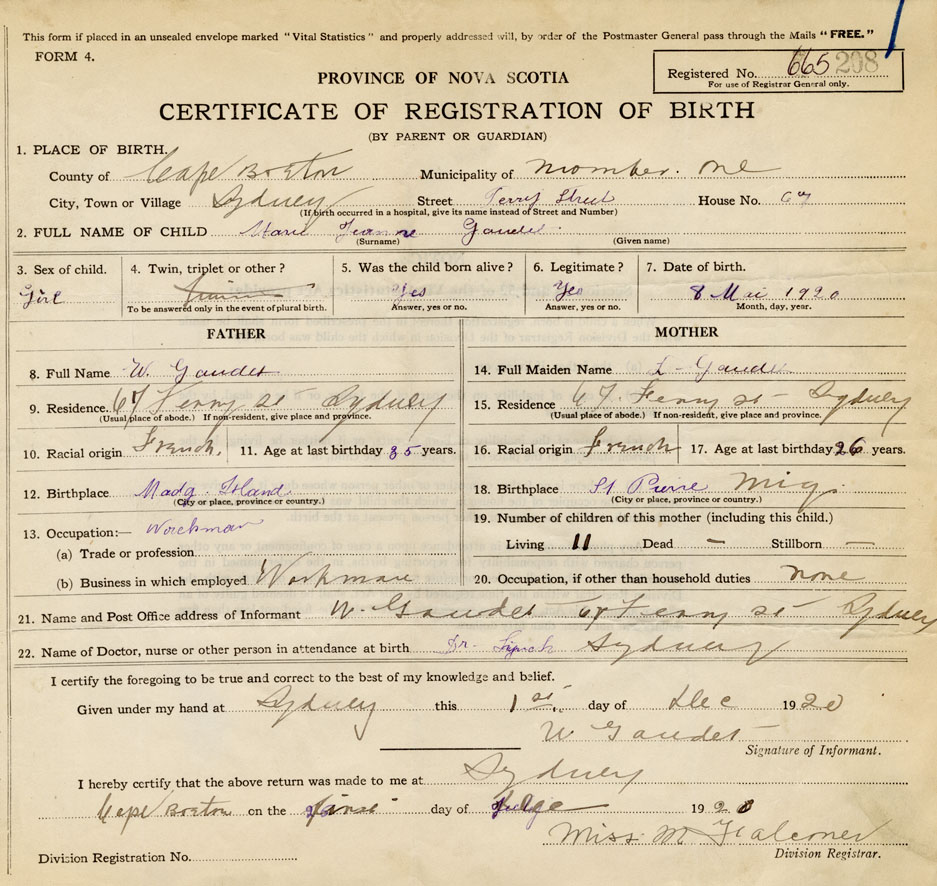 This form if placed in an unsealed envelope marked "Vital Statistics" and properly addressed will, by order of the Postmaster General pass through the Mails "FREE."
FORM 4.
PROVINCE OF NOVA SCOTIA
Registered No. 665 208
For use of Registrar General only.
CERTIFICATE OF REGISTRATION OF BIRTH
(BY PARENT OR GUARDIAN)
1. PLACE OF BIRTH.
County of Cape Boreton Municipality of nomber. one
City, Town or Village Sydney Street Ferry Street House No. 67
(If birth occurred in a hospital, give its name instead of Street and Number)
2. FULL NAME OF CHILD Marie Jeanne Gaudet
(Surname) (Given name)
3. Sex of child. 4. Twin, triplet or other? 5. Was the child born alive? 6. Legitimate? 7. Date of birth.
Girl Yes Yes 8 Mai 1920
To be answered only in the event of plural birth. Answer, yes or no. Answer, yes or no. Month, day, year.
FATHER MOTHER
8. Full Name W. Gaudet 14. Full Maiden Name L - Gaudet
9. Residence. 67 Ferry st Sydney 15. Residence 67. Ferry st - Sydney
(Usual place of abode.) If non-resident, give place and province. (Usual place of abode.) If non-resident, give place and province.
10. Racial origin French. 11. Age at last birthday 35 years. 16. Racial origin French 17. Age at last birthday 26 years.
12. Birthplace Madg. Island 18. Birthplace St Pierre Miq.
(City or place, province or country.) (City or place, province or country.)
13. Occupation:— Workman 19. Number of children of this mother (including this child.)
(a) Trade or profession Living 11 Dead – Stillborn —
(b) Business in which employed Workman 20. Occupation, if other than household duties none
21. Name and Post Office address of Informant W. Gaudet 67 Ferry st - Sydney
22. Name of Doctor, nurse or other person in attendance at birth Dr. Sydney
I certify the foregoing to be true and correct to the best of my knowledge and belief.
Given under my hand at Sydney this 1st. day of Dec 1920
W Gaudet
Signature of Informant.
I hereby certify that the above return was made to me at Sydney
Cape Boreton on the day of 1920
Miss M Falconer
Division Registrar.
Division Registration No.